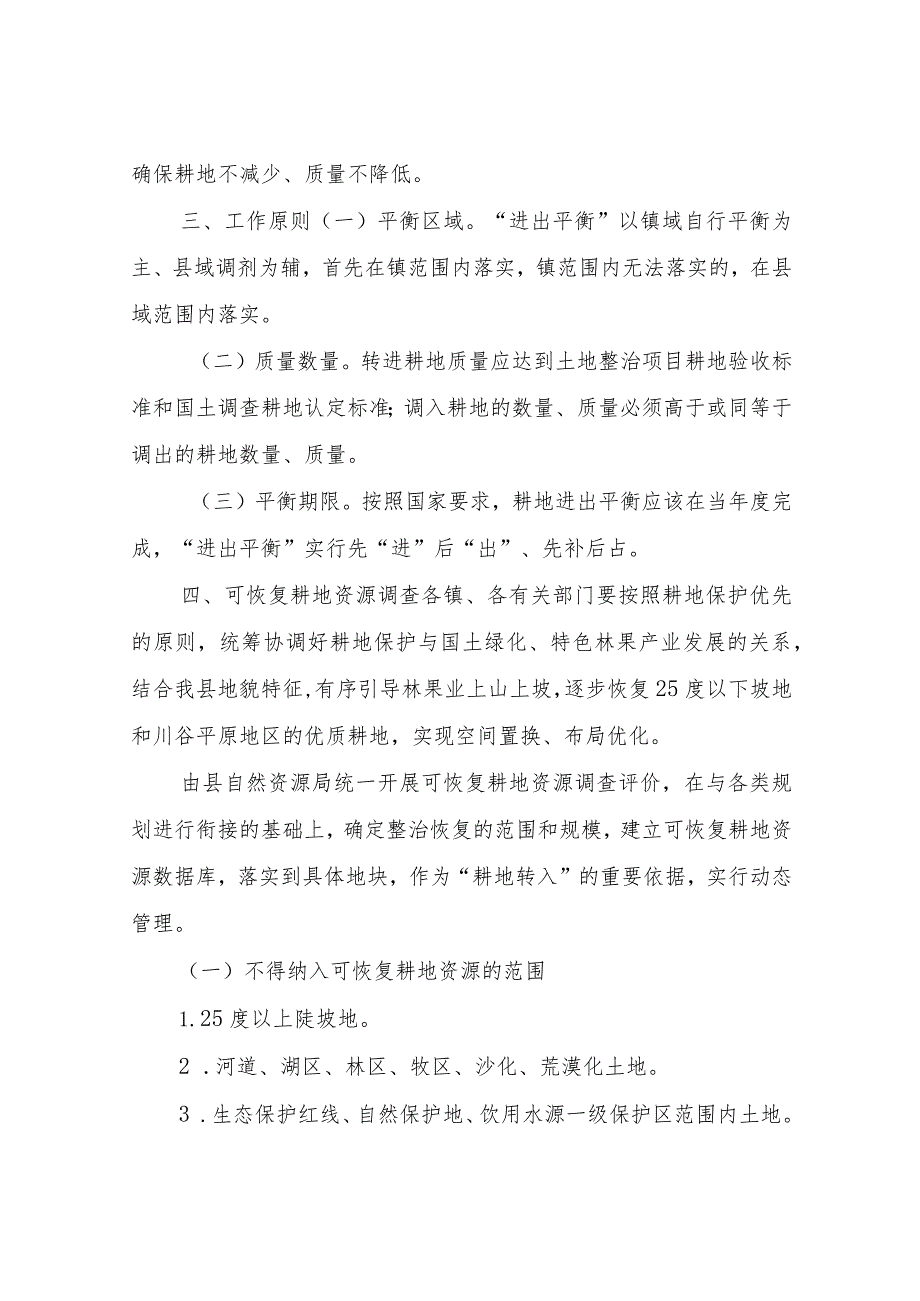 确保耕地不减少、质量不降低。
三、工作原则（一）平衡区域。“进出平衡”以镇域自行平衡为
主、县域调剂为辅，首先在镇范围内落实，镇范围内无法落实的，在县
域范围内落实。
（二）质量数量。转进耕地质量应达到土地整治项目耕地验收标
准和国土调查耕地认定标准；调入耕地的数量、质量必须高于或同等于
调出的耕地数量、质量。
（三）平衡期限。按照国家要求，耕地进出平衡应该在当年度完
成，“进出平衡”实行先“进”后“出”、先补后占。
四、可恢复耕地资源调查各镇、各有关部门要按照耕地保护优先
的原则，统筹协调好耕地保护与国土绿化、特色林果产业发展的关系，
结合我县地貌特征,有序引导林果业上山上坡,逐步恢复25度以下坡地
和川谷平原地区的优质耕地，实现空间置换、布局优化。
由县自然资源局统一开展可恢复耕地资源调查评价，在与各类规
划进行衔接的基础上，确定整治恢复的范围和规模，建立可恢复耕地资
源数据库，落实到具体地块，作为“耕地转入”的重要依据，实行动态
管理。
（一）不得纳入可恢复耕地资源的范围
1.25度以上陡坡地。
2.河道、湖区、林区、牧区、沙化、荒漠化土地。
3.生态保护红线、自然保护地、饮用水源一级保护区范围内土地。